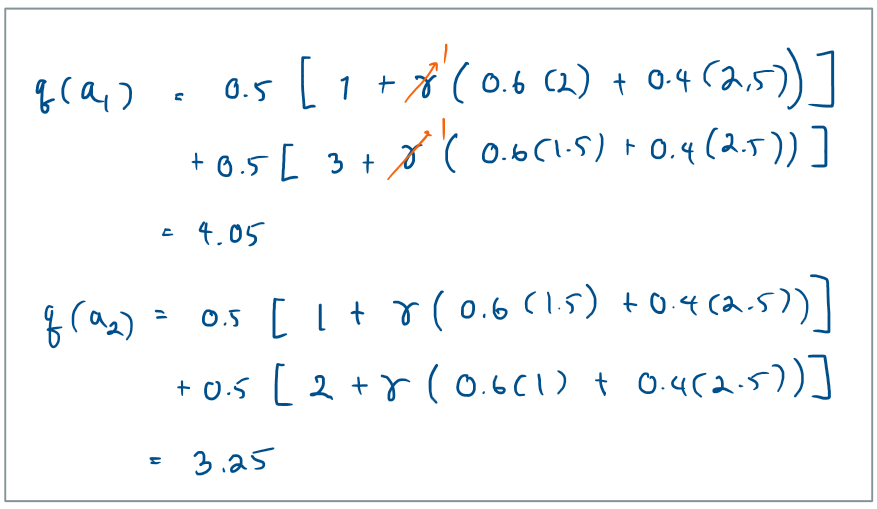 q(a₁) = 0.5 [ 1 + γ 1 ( 0.6 (2) + 0.4 (2.5)) ]
+ 0.5 [ 3 + γ 1 ( 0.6(1.5) + 0.4(2.5)) ]
= 4.05
q(a₂) = 0.5 [ 1 + γ ( 0.6 (1.5) + 0.4(2.5)) ]
+ 0.5 [ 2 + γ ( 0.6(1) + 0.4(2.5)) ]
= 3.25